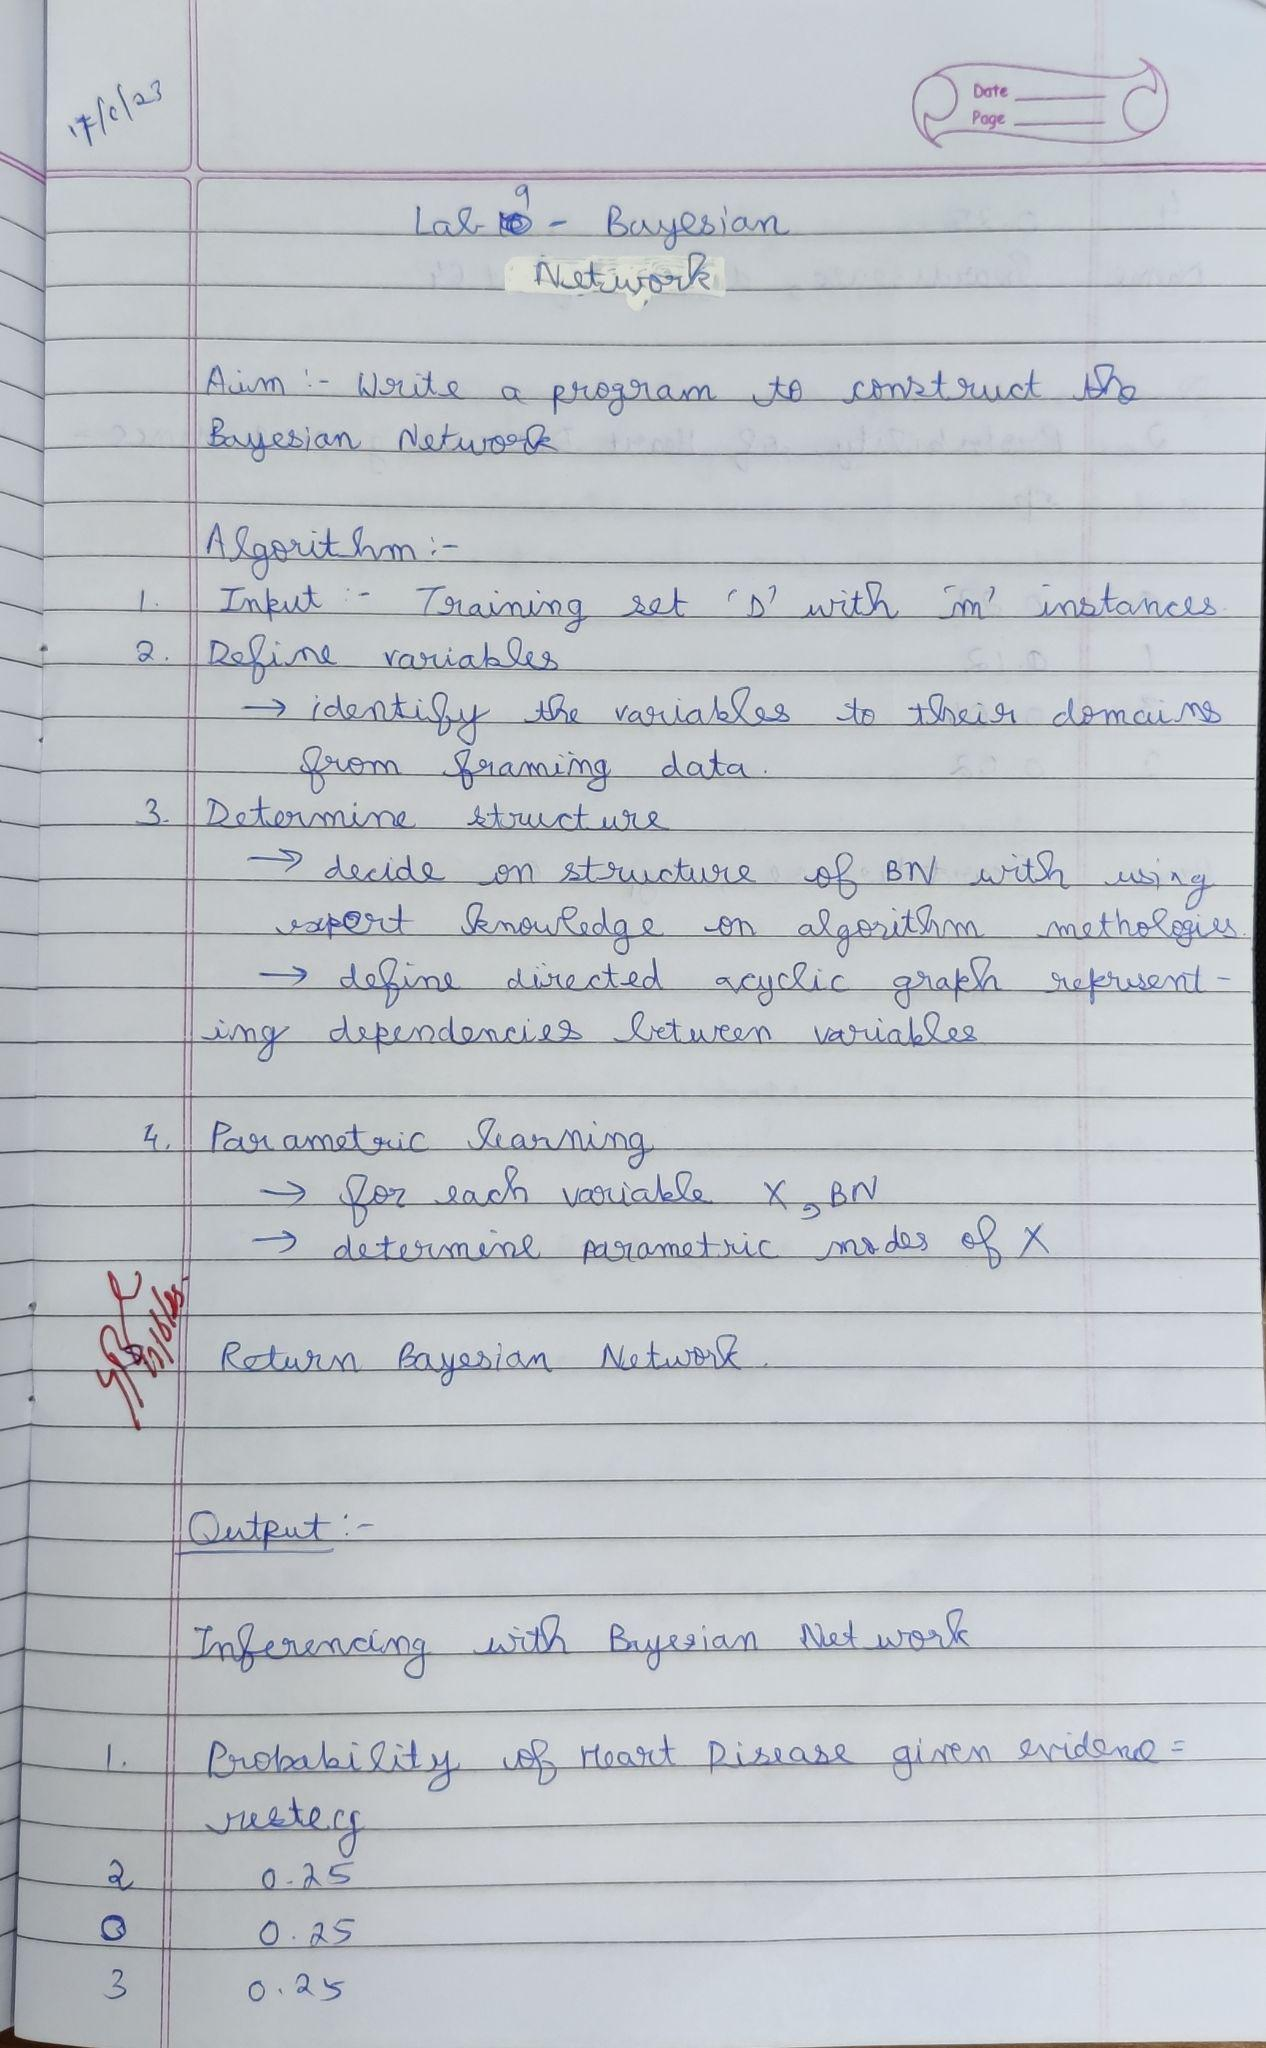 17/6/23
Date
Page
Lab 9 - Bayesian
Network
Aim :- Write a program to construct the
Bayesian Network
Algorithm :-
1. Input :- Training set 'D' with 'm' instances
2. Define variables
→ identify the variables to their domains
from framing data.
3. Determine structure
→ decide on structure of BN with using
expert knowledge on algorithm methologies.
→ define directed acyclic graph represent-
ing dependencies between variables
4. Parametric learning
→ for each variable X, BN
→ determine parametric modes of X
Return Bayesian Network.
Output :-
Inferencing with Bayesian Network
1. Probability of Heart Disease given evidence =
restecg
2 0.25
0 0.25
3 0.25